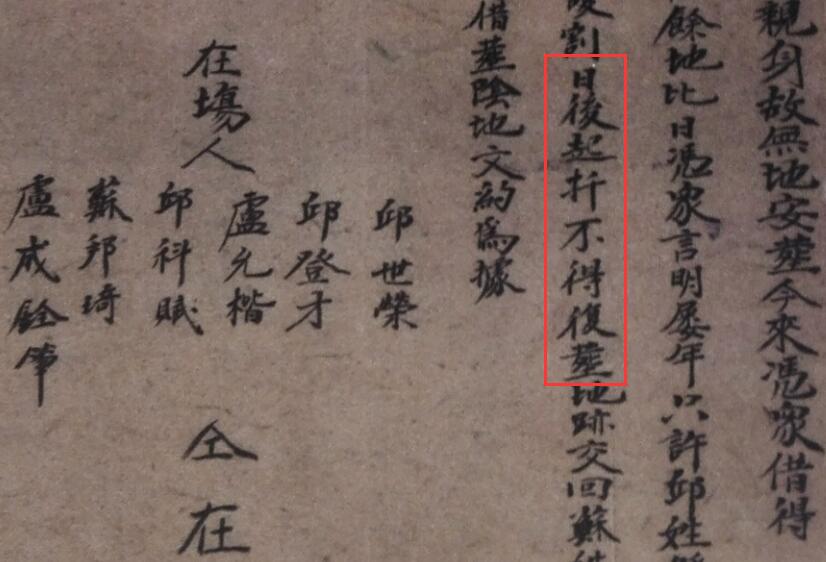 親身故無地安塟今來憑衆借得
餘地比日憑衆言明屢年只許邱姓
割日後起扦不得復塟地跡交回蘇
借塟陰地文約爲據
邱世榮
邱登才
盧允楷
在塲人
仝在
邱科賦
蘇邦琦
盧成銓筆